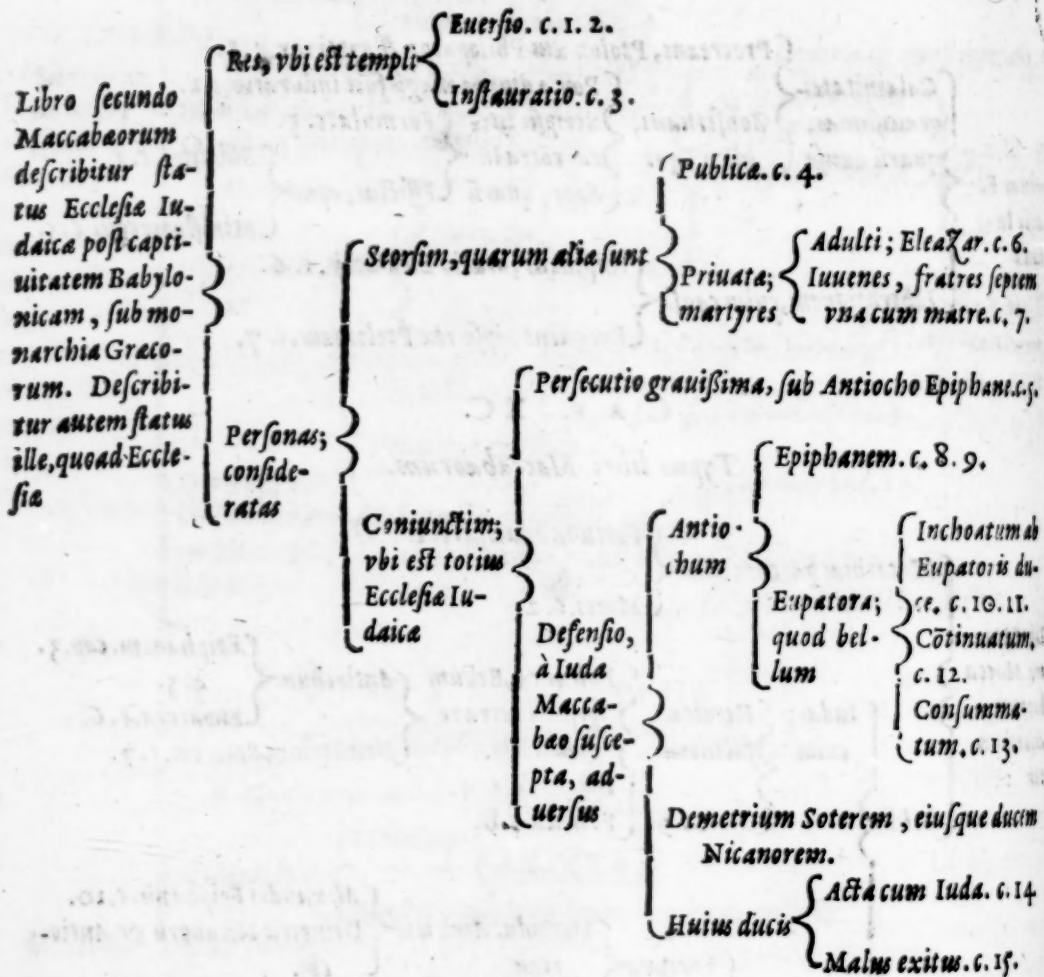 Libro ſecundo
Maccabæorum
deſcribitur ſta-
tus Eccleſiæ Iu-
daicæ poſt capti-
uitatem Babylo-
nicam, ſub mo-
narchia Græco-
rum. Deſcribi-
tur autem ſtatus
ille, quoad Eccle-
ſiæ
Res, vbi eſt templi
Euerſio. c. 1. 2.
Inſtauratio. c. 3.
Perſonas;
conſide-
ratas
Seorſim, quarum aliæ ſunt
Publicæ. c. 4.
Priuatæ;
martyres
Adulti; Eleazar. c. 6.
Iuuenes, fratres ſeptem
vna cum matre. c. 7.
Coniunctim;
vbi eſt totius
Eccleſiæ Iu-
daicæ
Perſecutio grauißima, ſub Antiocho Epiphane. c. 5.
Defenſio,
à Iuda
Macca-
bæo ſuſce-
pta, ad-
uerſus
Antio-
chum
Epiphanem. c. 8. 9.
Eupatora;
quod bel-
lum
Inchoatum ab
Eupatoris du-
ce. c. 10. 11.
Cõtinuatum,
c. 12.
Conſumma-
tum. c. 13.
Demetrium Soterem, eiuſque ducem
Nicanorem.
Huius ducis
Acta cum Iuda. c. 14
Malus exitus. c. 15.